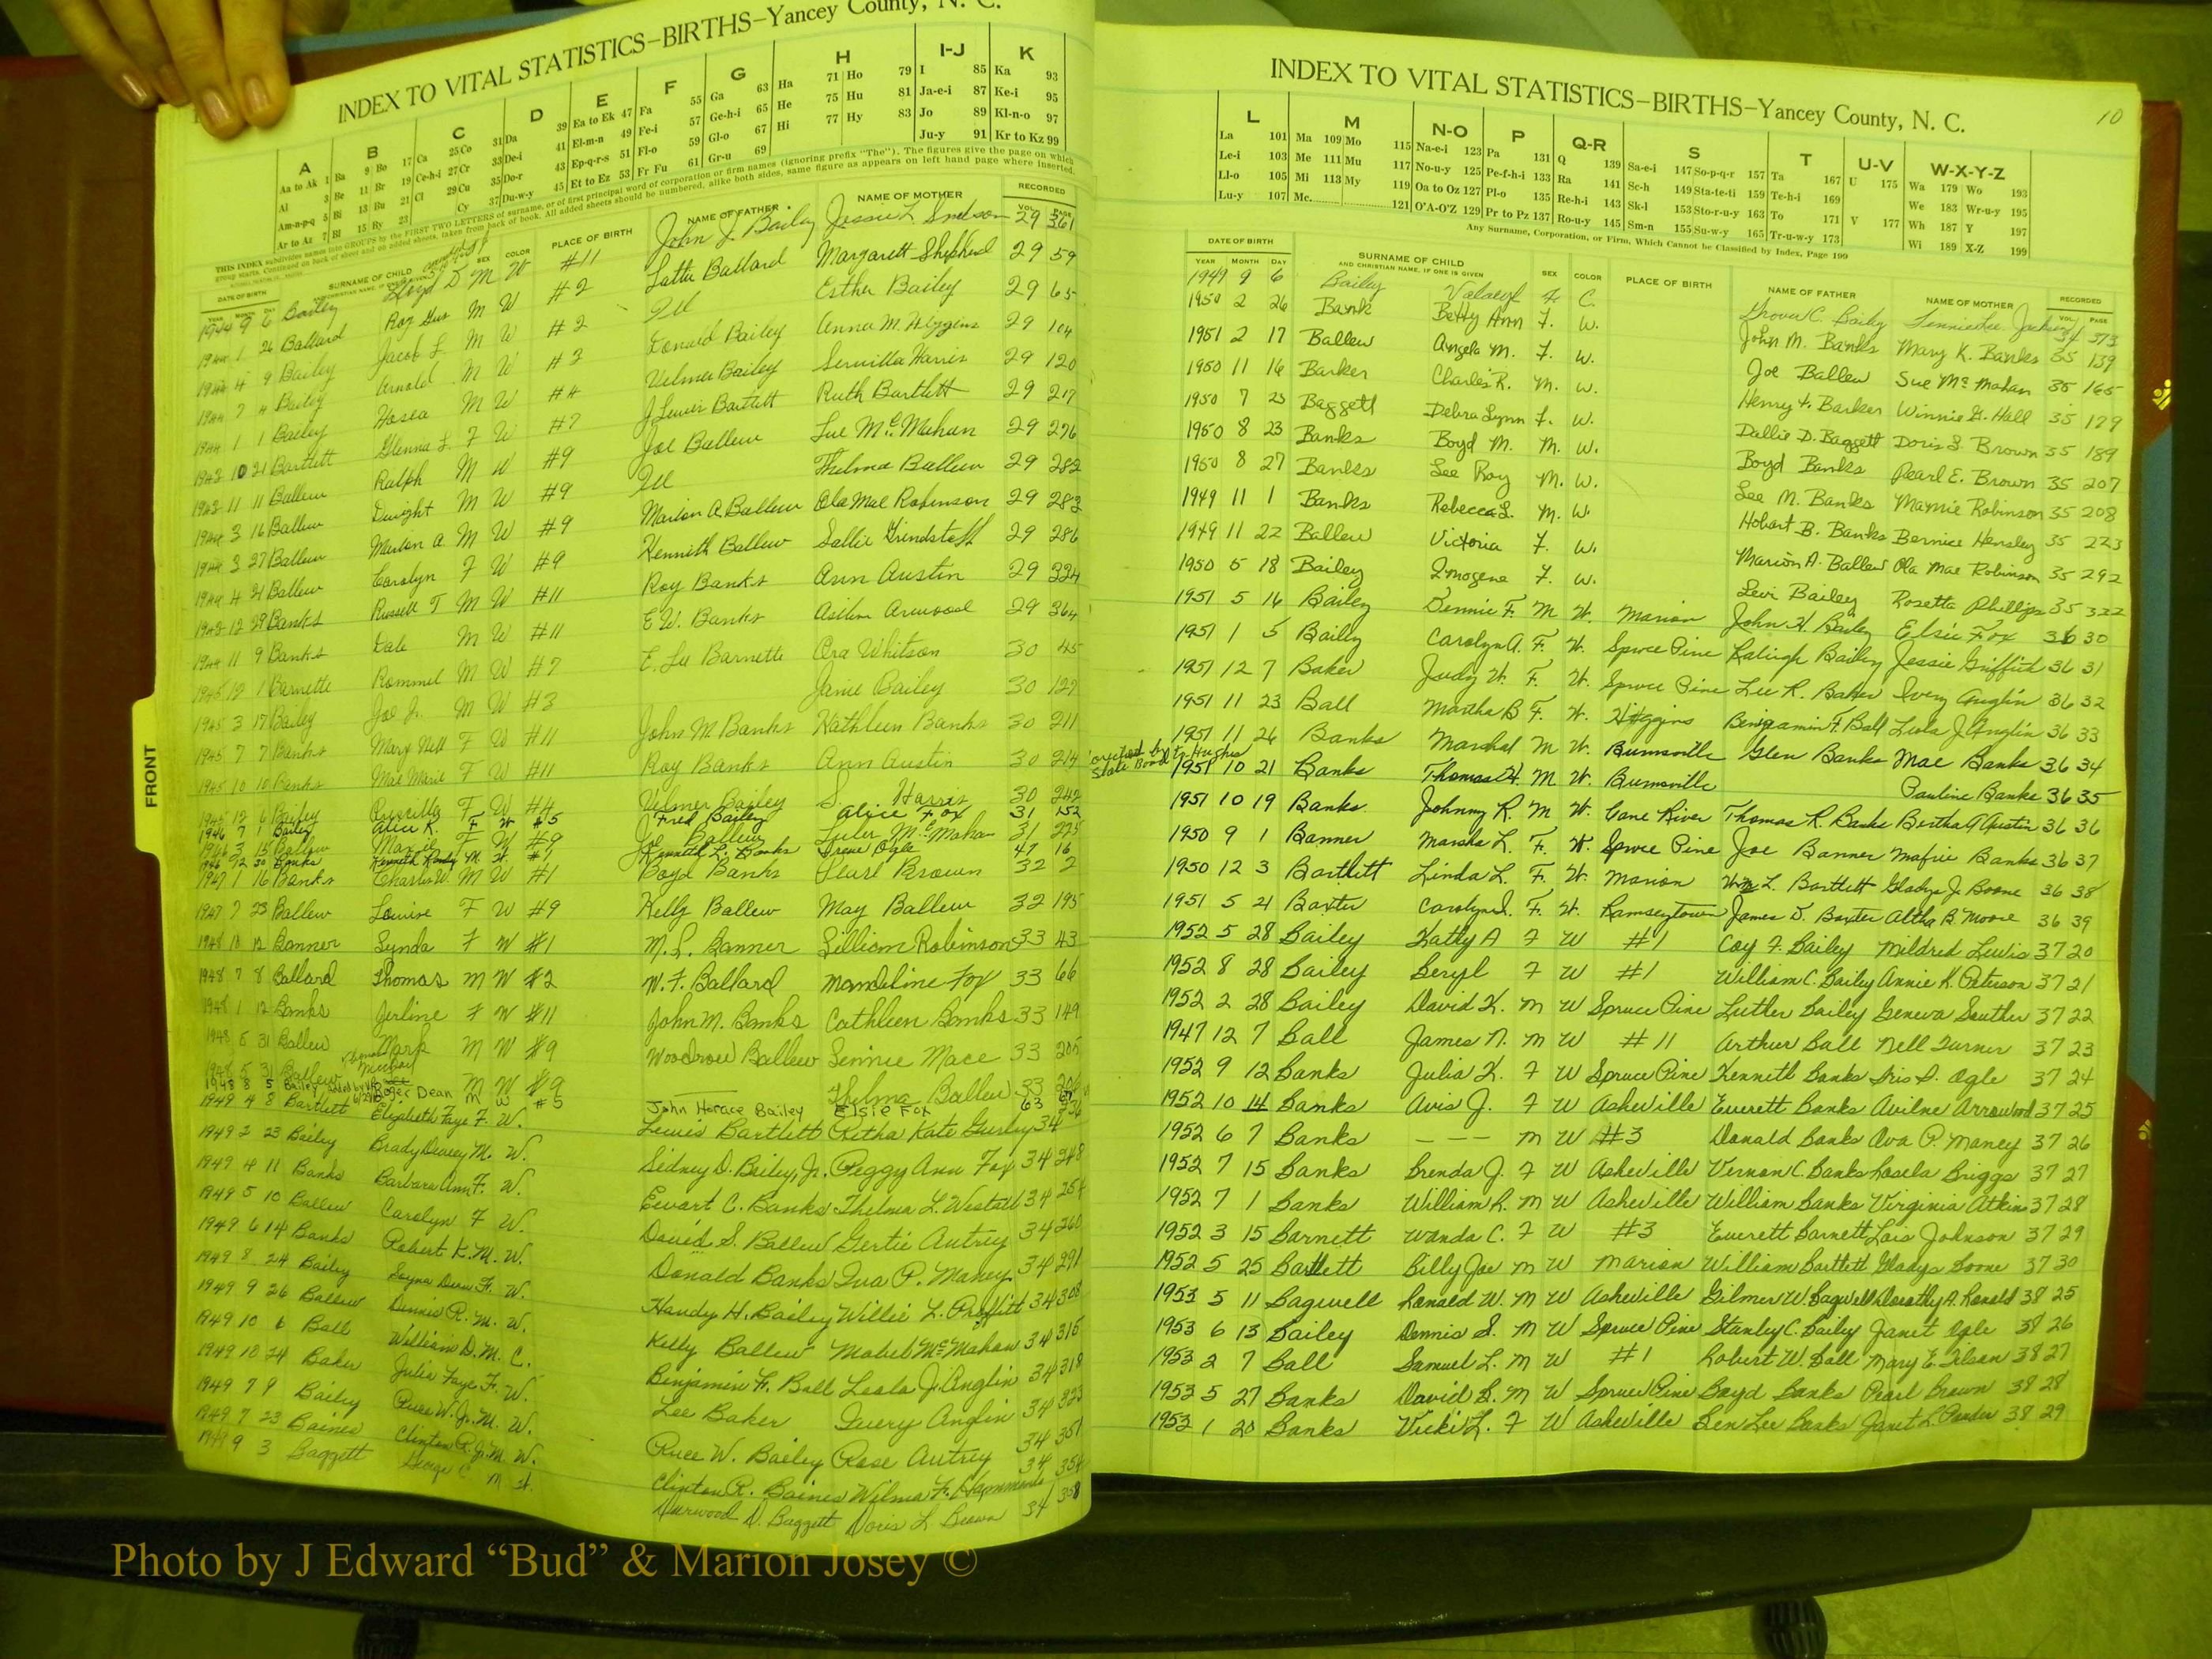 INDEX TO VITAL STATISTICS–BIRTHS–Yancey County, N. C.
A B C D E F G H I-J K
Aa to Ak 1 Ba 9 Bo 17 Ca 25 Co 31 Da 39 Ea to Ek 47 Fa 55 Ga 63 Ha 71 Ho 79 I 85 Ka 93
Al 3 Be 11 Br 19 Ce-h-i 27 Cr 33 De-i 41 El-m-n 49 Fe-i 57 Ge-h-i 65 He 75 Hu 81 Ja-e-i 87 Ke-i 95
Am-n-p-q 5 Bi 13 Bu 21 Cl 29 Cu 35 Do-r 43 Ep-q-r-s 51 Fl-o 59 Gl-o 67 Hi 77 Hy 83 Jo 89 Kl-n-o 97
Ar to Az 7 Bl 15 By 23 Cy 37 Du-w-y 45 Et to Ez 53 Fr Fu 61 Gr-u 69 Ju-y 91 Kr to Kz 99
DATE OF BIRTH SURNAME OF CHILD SEX COLOR PLACE OF BIRTH NAME OF FATHER NAME OF MOTHER RECORDED
1944 9 6 Bailey Lloyd D M W #11 John J. Bailey Jessie L. 29 361
1944 1 26 Ballard Roy Gus M W #2 Latta Ballard Margarett Shepherd 29 59
1944 4 9 Bailey Jacob L. M W #2 Ill Esther Bailey 29 65
1944 7 4 Bailey Arnold M W #3 Donald Bailey Anna M. Higgins 29 104
1944 1 1 Bailey Hosea M W #4 Velmer Bailey Servilla Harris 29 120
1943 10 21 Bartlett Glenna L. F W #7 J Lewis Bartlett Ruth Bartlett 29 217
1943 11 11 Ballew Ralph M W #9 Joe Ballew Sue McMahan 29 276
1944 3 16 Ballew Dwight M W #9 Ill Thelma Ballew 29 282
1944 3 27 Ballew Marion A M W #9 Marion A. Ballew Ola Mae Robinson 29 283
1944 4 21 Ballew Carolyn F W #9 Kenneth Ballew Sallie Grindstaff 29 286
1943 12 29 Banks Russell T M W #11 Roy Banks Ann Austin 29 334
1944 11 9 Banks Dale M W #11 E.W. Banks 29 364
1945 12 1 Barnette Rommel M W #7 E. Lee Barnette Ora Whitson 30 45
1945 3 17 Bailey Joe Jr. M W #3 Janie Bailey 30 127
1945 7 7 Banks Mary Nell F W #11 John M Banks Kathleen Banks 30 211
1945 10 10 Banks Mae Marie F W #11 Roy Banks Ann Austin 30 214
1945 12 6 Bailey Priscilla F W #4 Velmer Bailey S. Harris 30 242
1946 7 1 Bailey Alice K. F W #5 Fred Bailey Alice Fox 31 152
1946 3 15 Ballew Maxie F W #9 Joe Ballew McMahan 31 275
1946 12 30 Banks Kenneth Randy M W #1 Kenneth L. Banks Irene Ogle 47 16
1947 1 16 Banks Charles W. M W #1 Boyd Banks Pearl Brown 32 2
1947 7 23 Ballew Louise F W #9 Kelly Ballew May Ballew 32 195
1948 10 12 Banner Lynda F W #1 M.L. Banner Lilliam Robinson 33 43
1948 7 8 Ballard Thomas M W #2 W.F. Ballard Mandeline Fox 33 66
1948 1 12 Banks Jerline F W #11 John M. Banks Cathleen Banks 33 149
1948 5 31 Ballew Mark M W #9 Woodrow Ballew Lennie Mace 33 205
1948 5 31 Ballew Michael M W #9 Thelma Ballew 33 206
1948 8 5 Bailey Roger Dean M W #5 John Horace Bailey Elsie Fox 63 67
1949 4 8 Bartlett Elizabeth Faye F. W. Lewis Bartlett Retha Kate Gurley 34
1949 2 23 Bailey Brady Deavey M. W. Sidney D. Bailey, Jr. Peggy Ann Fox 34 248
1949 4 11 Banks Barbara Ann F. W. Ewart C. Banks Thelma L. Westall 34 254
1949 5 10 Ballew Carolyn F W. David S. Ballew Gertie Autrey 34 260
1949 6 14 Banks Robert K. M. W. Donald Banks Iva P. Maney 34 291
1949 8 24 Bailey F. W. Handy H. Bailey Willie L. Proffitt 34 308
1949 9 26 Ballew Dennis R. M. W. Kelly Ballew Mabel McMahan 34 315
1949 10 6 Ball William D. M. C. Benjamin F. Ball Leola J. Anglin 34 318
1949 10 24 Baker Julia Faye F. W. Lee Baker Ivery Anglin 34 323
1949 7 9 Bailey Ruce W. Jr. M. W. Ruce W. Bailey Rose Autrey 34 351
1949 7 23 Baines Clinton R. Jr. M. W. Clinton R. Baines Wilma F. Hammonds 34 354
1949 9 3 Baggett George C. M W. Durwood D. Baggett Doris L Brown 34 358
FRONT
INDEX TO VITAL STATISTICS–BIRTHS–Yancey County, N. C.
10
L M N-O P Q-R S T U-V W-X-Y-Z
La 101 Ma 109 Mo 115 Na-e-i 123 Pa 131 Q 139 Sa-e-i 147 So-p-q-r 157 Ta 167 U 175 Wa 179 Wo 193
Le-i 103 Me 111 Mu 117 No-u-y 125 Pe-f-h-i 133 Ra 141 Sc-h 149 Sta-te-ti 159 Te-h-i 169 We 183 Wr-u-y 195
Ll-o 105 Mi 113 My 119 Oa to Oz 127 Pl-o 135 Re-h-i 143 Sk-l 153 Sto-r-u-y 163 To 171 V 177 Wh 187 Y 197
Lu-y 107 Mc 121 O'A-O'Z 129 Pr to Pz 137 Ro-u-y 145 Sm-n 155 Su-w-y 165 Tr-u-w-y 173 Wi 189 X-Z 199
Any Surname, Corporation, or Firm, Which Cannot be Classified by Index, Page 199
DATE OF BIRTH SURNAME OF CHILD SEX COLOR PLACE OF BIRTH NAME OF FATHER NAME OF MOTHER RECORDED
YEAR MONTH DAY AND CHRISTIAN NAME, IF ONE IS GIVEN VOL. PAGE
1949 9 6 Bailey F. C. Grover C. Bailey Lennie Lee Jackson 34 373
1950 2 26 Bank Betty Ann F. W. John M. Banks Mary K. Banks 35 139
1951 2 17 Ballew Angela M. F. W. Joe Ballew Sue McMahan 35 165
1950 11 16 Barker Charles R. M. W. Henry F. Barker Winnie G. Hall 35 179
1950 7 23 Baggett Debra Lynn F. W. Dallie D. Baggett Doris L. Brown 35 189
1950 8 23 Banks Boyd M. M. W. Boyd Banks Pearl E. Brown 35 207
1950 8 27 Banks Lee Roy M. W. Lee M. Banks Mamie Robinson 35 208
1949 11 1 Banks Rebecca L. M. W. Hobart B. Banks Bernice Hensley 35 223
1949 11 22 Ballew Victoria F. W. Marion A. Ballew Ola Mae Robinson 35 292
1950 5 18 Bailey Imogene F. W. Levi Bailey Rosetta Phillips 35 322
1951 5 16 Bailey Dennie F. M W. Marion John H. Bailey Elsie Fox 36 30
1951 1 5 Bailey Carolyn A. F. W. Spruce Pine Raleigh Bailey Jessie Griffith 36 31
1951 12 7 Baker Judy W. F. W. Spruce Pine Lee R. Baker Ivery Anglin 36 32
1951 11 23 Ball Martha B F. W. Higgins Benjamin F. Ball Leola J. Anglin 36 33
1951 11 26 Banks Marshal M W. Burnsville Glen Banks Mae Banks 36 34
1951 10 21 Banks Thomas H. M W. Burnsville Pauline Banks 36 35
1951 10 19 Banks Johnny R. M W. Cane River Thomas R. Banks Bertha A Austin 36 36
1950 9 1 Banner Marsha L. F. W. Spruce Pine Joe Banner Mafrie Banks 36 37
1950 12 3 Bartlett Linda L. F. W. Marion Wm L. Bartlett Gladys J. Boone 36 38
1951 5 21 Baxter Carolyn S. F. W. Ramseytown James D. Baxter Altha B. Moore 36 39
1952 5 28 Bailey Kathy A F W #1 Coy F. Bailey Mildred Lewis 37 20
1952 8 28 Bailey Beryl F W #1 William C. Bailey Annie K. Peterson 37 21
1952 2 28 Bailey David K. M W Spruce Pine Luther Bailey Geneva Souther 37 22
1947 12 7 Ball James N. M W #11 Arthur Ball Nell Turner 37 23
1952 9 12 Banks Julia K. F W Spruce Pine Kenneth Banks Iris D. Ogle 37 24
1952 10 14 Banks Avis J. F W Asheville Everett Banks Avilne Arrowood 37 25
1952 6 7 Banks – – – M W #3 Donald Banks Ova P. Maney 37 26
1952 7 15 Banks Brenda J. F W Asheville Vernon C. Banks Rosela Briggs 37 27
1952 7 1 Banks William R. M W Asheville William Banks Virginia Atkins 37 28
1952 3 15 Barnett Wanda C. F W #3 Everett Barnett Lois Johnson 37 29
1952 5 25 Bartlett Billy Joe M W Marion William Bartlett Gladys Boone 37 30
1953 5 11 Bagwell Ronald W. M W Asheville Gilmer W. Bagwell Dorothy A. Ronald 38 25
1953 6 13 Bailey Dennis S. M W Spruce Pine Stanley C. Bailey Janet Ogle 38 26
1953 2 7 Ball Samuel L. M W #1 Robert W. Ball Mary E. Tilson 38 27
1953 5 27 Banks David B. M W Spruce Pine Boyd Banks Pearl Brown 38 28
1953 1 20 Banks Vicki L. F W Asheville Ben Lee Banks Janet L. 38 29
Photo by J Edward “Bud” & Marion Josey ©